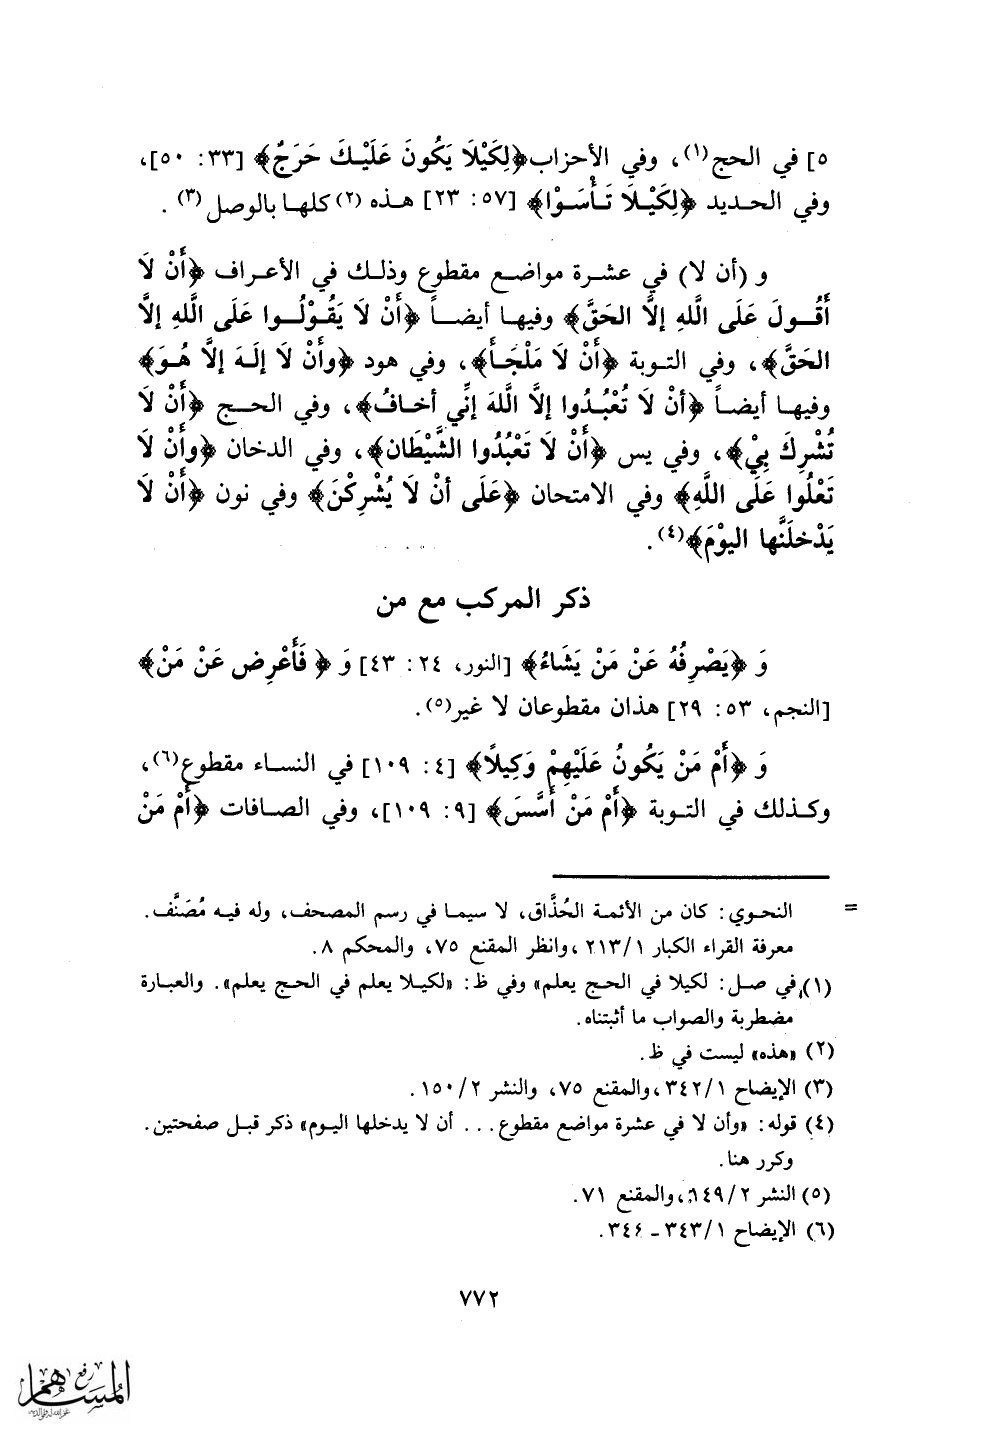 ٥] في الحج(١)، وفي الأحزاب﴿لِكَيْلَا يَكُونَ عَلَيْكَ حَرَجٌ﴾ [٣٣: ٥٠]،
وفي الحديد ﴿لِكَيْلَا تَأْسَوْا﴾ [٥٧: ٢٣] هذه (٢) كلها بالوصل(٣).
و (أن لا) في عشرة مواضع مقطوع وذلك في الأعراف ﴿أَنْ لَا
أَقُولَ عَلَى اللَّهِ إلَّا الحَقَّ﴾ وفيها أيضاً ﴿أَنْ لَا يَقُوْلُوا عَلَى اللَّهِ إلَّا
الحَقَّ﴾، وفي التوبة ﴿أَنْ لَا مَلْجَأَ﴾، وفي هود ﴿وأَنْ لَا إلَهَ إلَّا هُوَ﴾
وفيها أيضاً ﴿أنْ لَا تَعْبُدُوا إلَّا اللَّهَ إنِّي أخافُ﴾، وفي الحج ﴿أَنْ لَا
تُشْرِكَ بِيْ﴾، وفي يس ﴿أَنْ لَا تَعْبُدُوا الشَّيْطَان﴾، وفي الدخان ﴿وأَنْ لَا
تَعْلُوا عَلَى اللَّهِ﴾ وفي الامتحان ﴿عَلَى أنْ لَا يُشْرِكْنَ﴾ وفي نون ﴿أَنْ لَا
يَدْخلَنَّها اليوْمَ﴾(٤).
ذكر المركب مع من
وَ ﴿يَصْرِفُهُ عَنْ مَنْ يَشَاءُ﴾ [النور، ٢٤: ٤٣] وَ ﴿ فَأَعْرِض عَنْ مَنْ﴾
[النجم، ٥٣: ٢٩] هذان مقطوعان لا غير(٥).
وَ ﴿أَمْ مَنْ يَكُونُ عَلَيْهِمْ وَكِيلًا﴾ [٤: ١٠٩] في النساء مقطوع(٦)،
وكذلك في التوبة ﴿أَمْ مَنْ أَسَّسَ﴾ [٩: ١٠٩]، وفي الصافات ﴿أَمْ مَنْ
= النحوي: كان من الأئمة الحُذَّاق، لا سيما في رسم المصحف، وله فيه مُصَنَّف.
معرفة القراء الكبار ٢١٣/١ ،وانظر المقنع ٧٥، والمحكم ٨.
(١) في صل: لكيلا في الحج يعلم» وفي ظ: «لكيلا يعلم في الحج يعلم». والعبارة
مضطربة والصواب ما أثبتناه.
(٢) «هذه» ليست في ظ.
(٣) الإيضاح ٣٤٢/١ ،والمقنع ٧٥، والنشر ١٥٠/٢.
(٤) قوله: «وأن لا في عشرة مواضع مقطوع... أن لا يدخلها اليوم» ذكر قبل صفحتين.
وكرر هنا.
(٥) النشر ١٤٩/٢ ،والمقنع ٧١.
(٦) الإيضاح ٣٤٣/١ ـ ٣٤٤.
٧٧٢